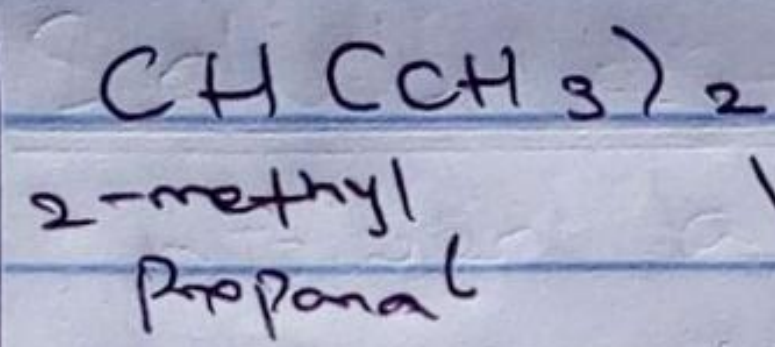 CH(CH3)2
2-methyl
Propanal